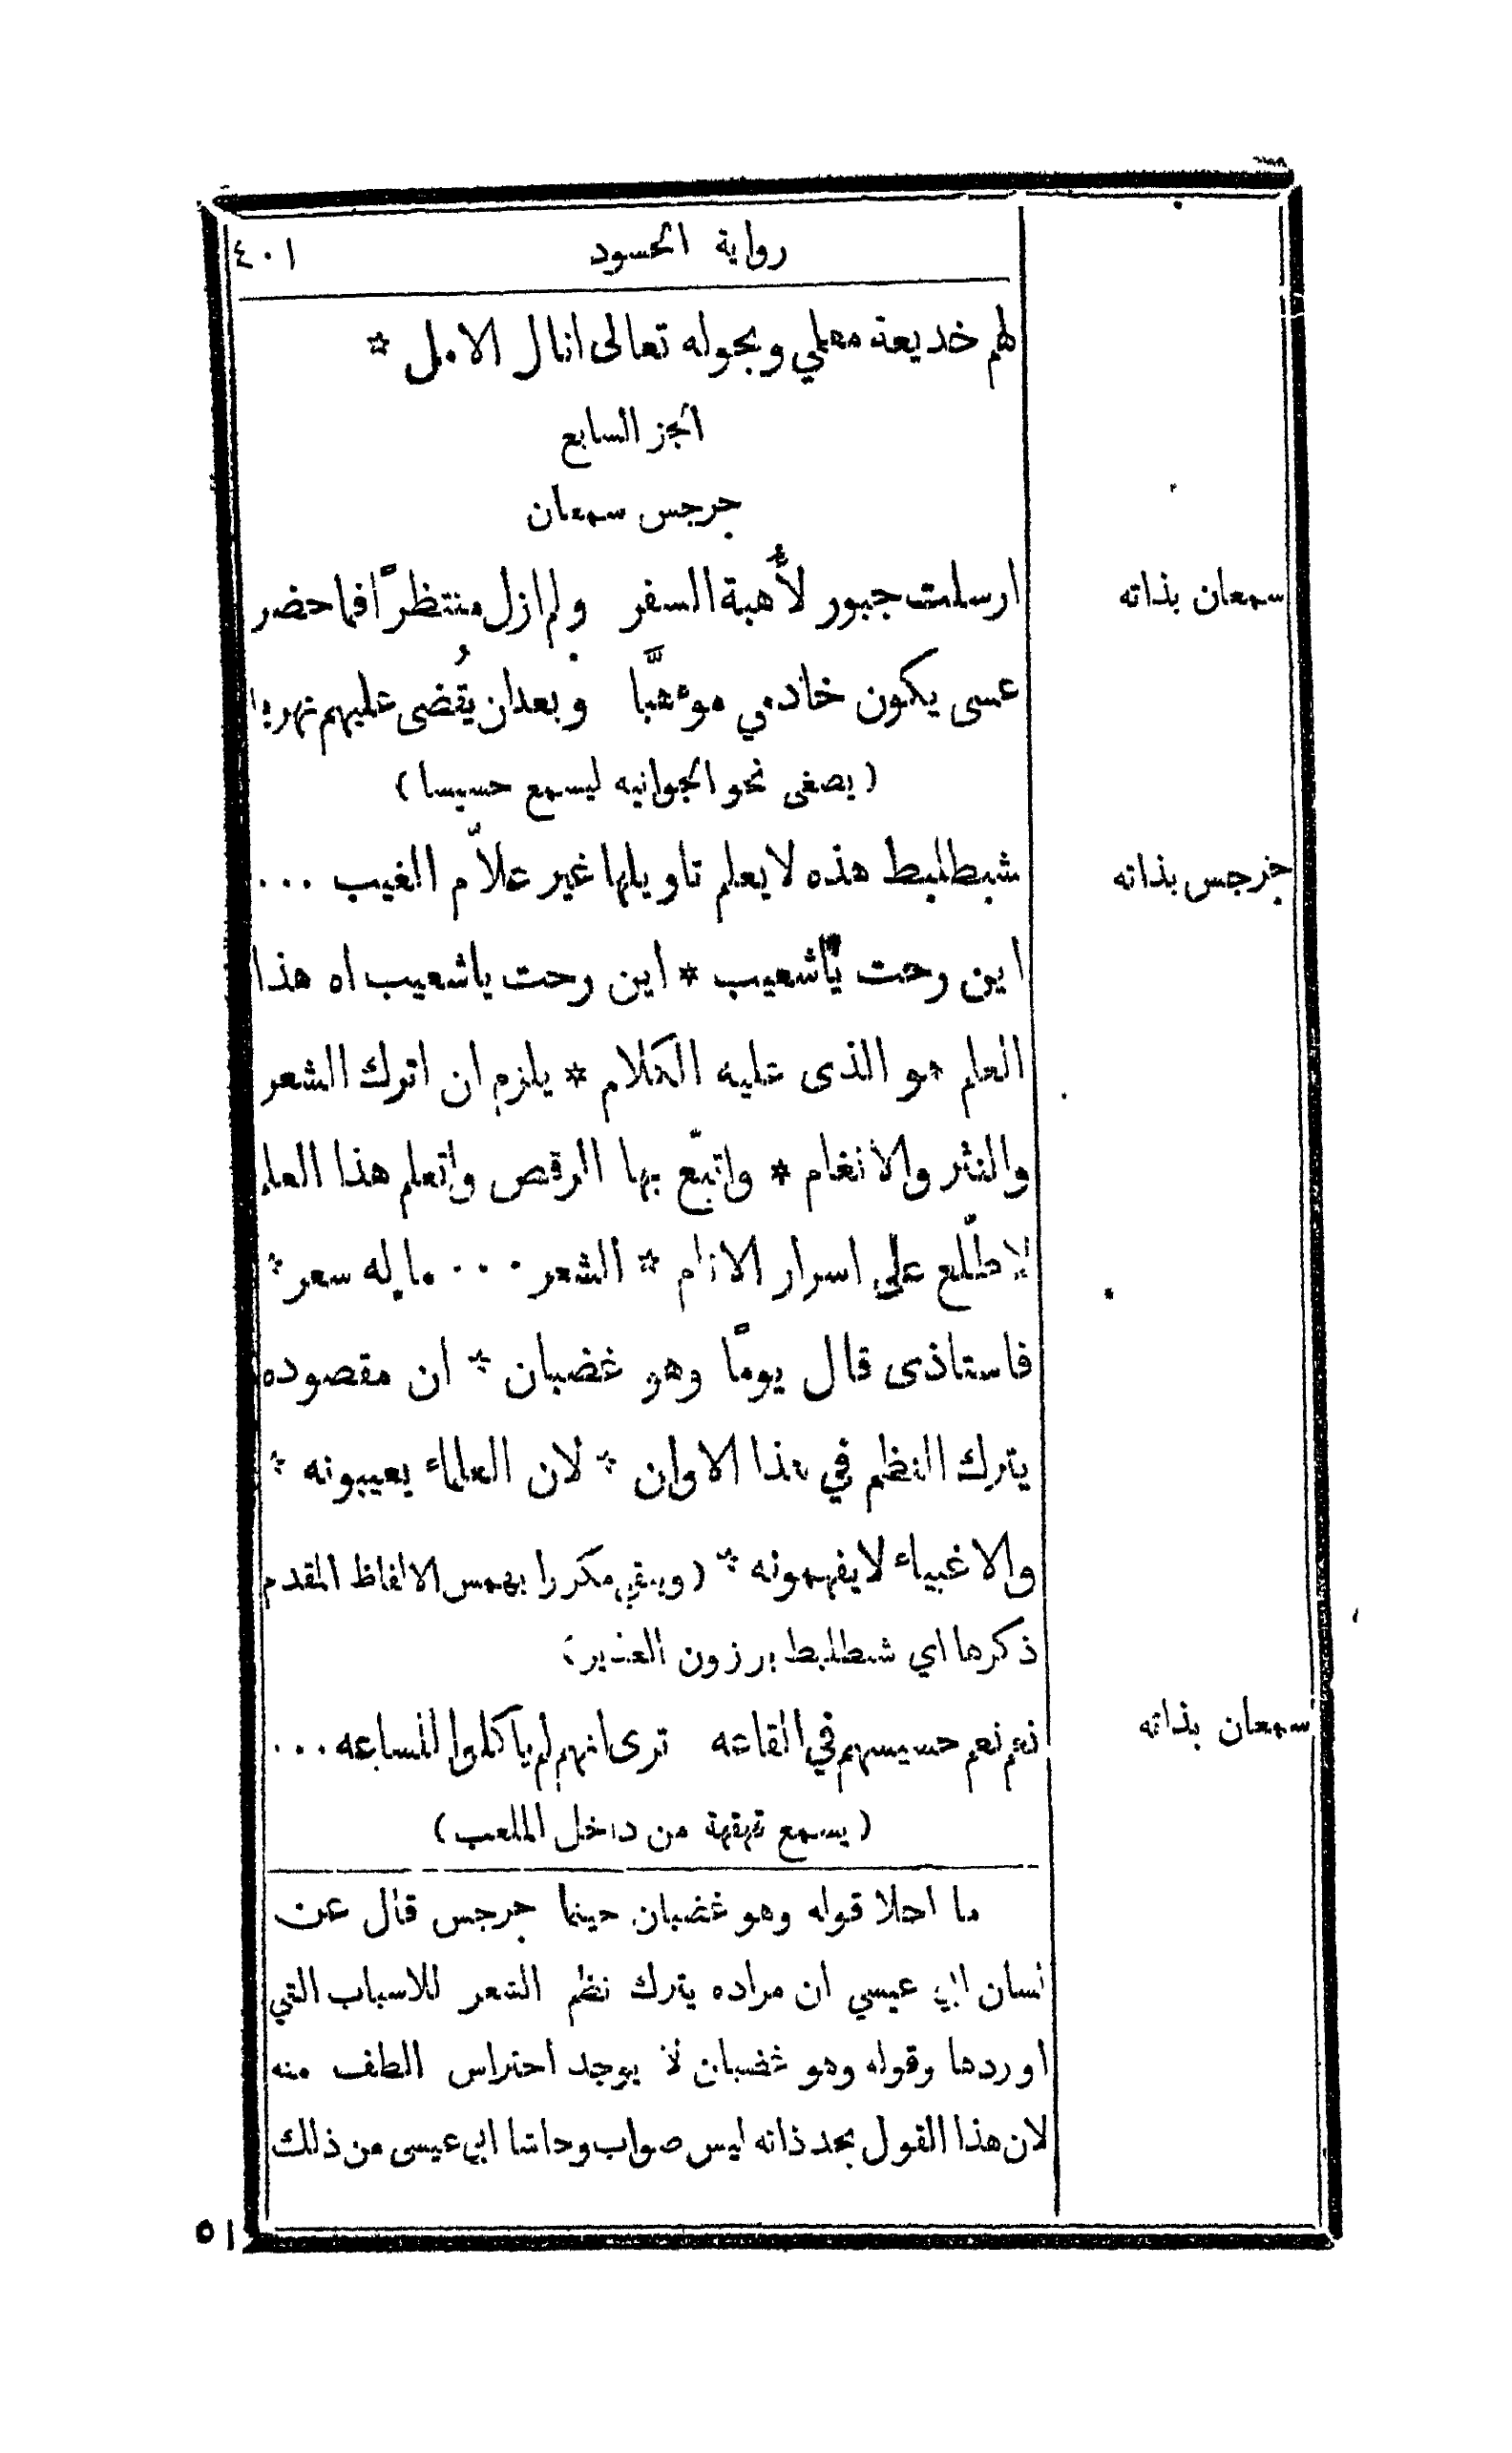 رواية الحسود ٤٠١
لهم خديعة معلمي وبحوله تعالى انال الامل *
الجز السابع
جرجس سمعان
سمعان بذاته ارسلت جبور لأُهبة السفر ولم ازل منتظرًا فما حضر
عسى يكون خادمي موءهبًّا وبعد ان يُقضى عليهم نهربا
(يصغى نحو الجوانيه ليسمع حسيسا)
جرجس بذاته شبطلبط هذه لا يعلم تاويلها غير علاّم الغيب ...
اين رحت يا شعيب * اين رحت يا شعيب اه هذا
العلم هو الذى عليه الكلام * يلزم ان اترك الشعر
والنثر والانغام * واتبّع بها الرقص واتعلم هذا العلم
لاطّلع على اسرار الانام * الشعر ... ما له سعر *
فاستاذى قال يومًا وهو غضبان * ان مقصوده
يترك النظم في هذا الاوان * لان العلماء يعيبونه *
والاغبياء لا يفهمونه * (ويبقى مكررا بهمس الالفاظ المقدم
ذكرها اي شبطلبط برزون
سمعان بذاته نعم نعم حسيسهم في القاعه ترى انهم لم ياكلوا للساعه ...
(يسمع قهقهة من داخل الملعب)
ما احلا قوله وهو غضبان حينما جرجس قال عن
لسان ابي عيسي ان مراده يترك نظم الشعر للاسباب التي
اوردها وقوله وهو غضبان لا يوجد احتراس الطف منه
لان هذا القول بحد ذاته ليس صواب وحاشا ابي عيسى من ذلك
٥١